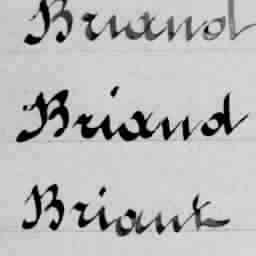 Briand
Briand
Briant